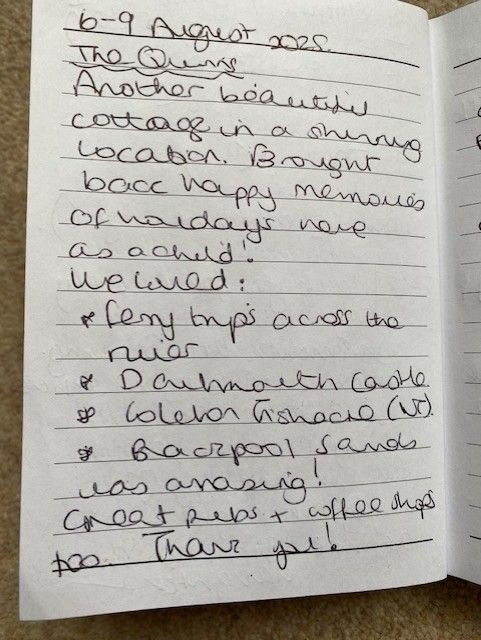 6-9 August 2025
The Quinns
Another beautiful
cottage in a stunning
location. Brought
back happy memories
of holidays here
as a child!
We loved:
* ferry trips across the
river
* Dartmouth Castle
* Coleton Fishacre (NT).
* Blackpool Sands
was amazing!
Great pubs + coffee shops
too. Thank you!